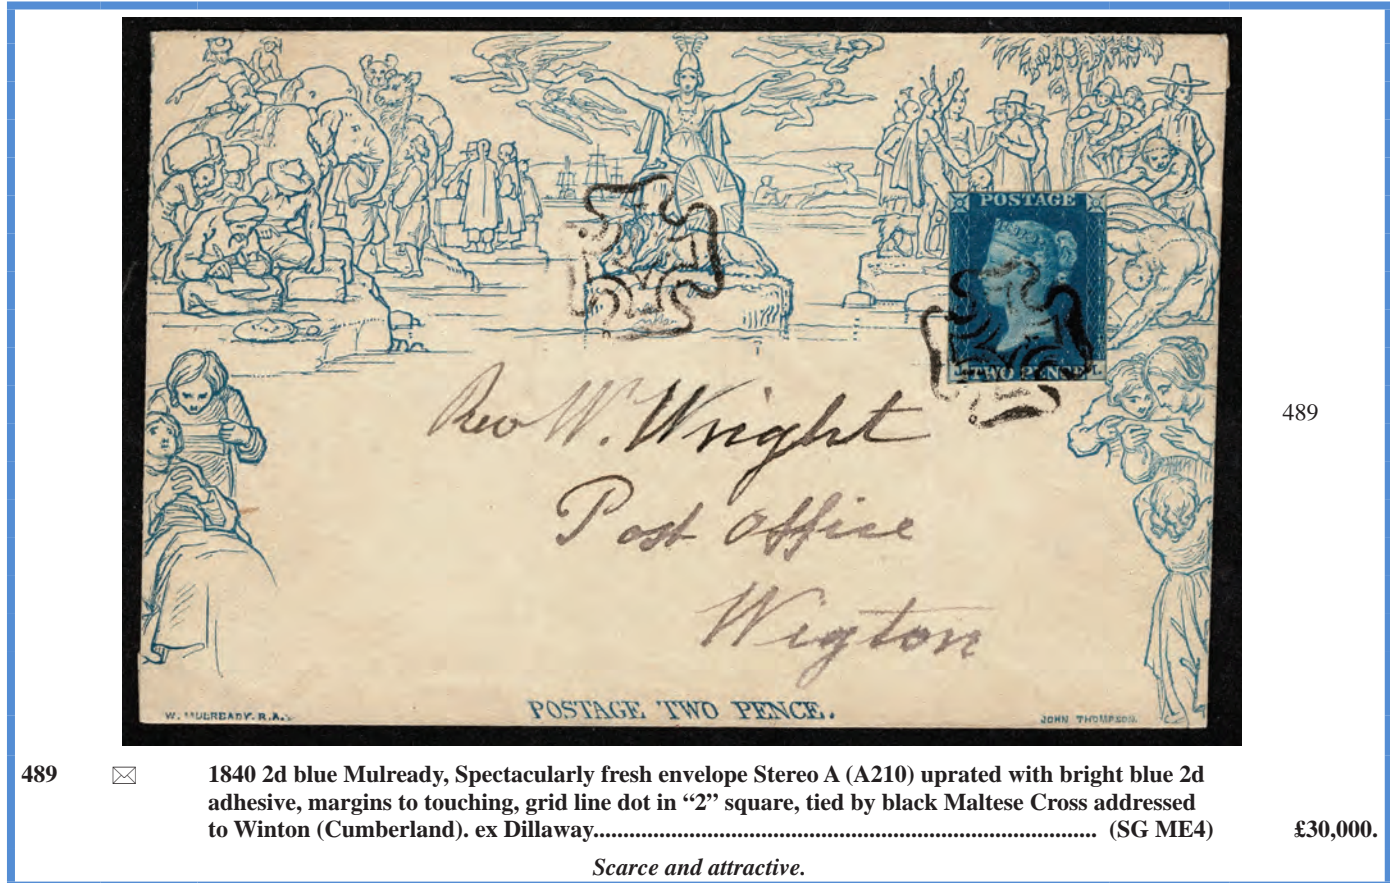 POSTAGE
TWO PENCE
L
Rev W. Wright
Post Office
Wigton
W. MULREADY. R.A.
POSTAGE TWO PENCE.
JOHN THOMPSON.
489
489 1840 2d blue Mulready, Spectacularly fresh envelope Stereo A (A210) uprated with bright blue 2d
adhesive, margins to touching, grid line dot in “2” square, tied by black Maltese Cross addressed
to Winton (Cumberland). ex Dillaway.......................................................................................................... (SG ME4) £30,000.
Scarce and attractive.